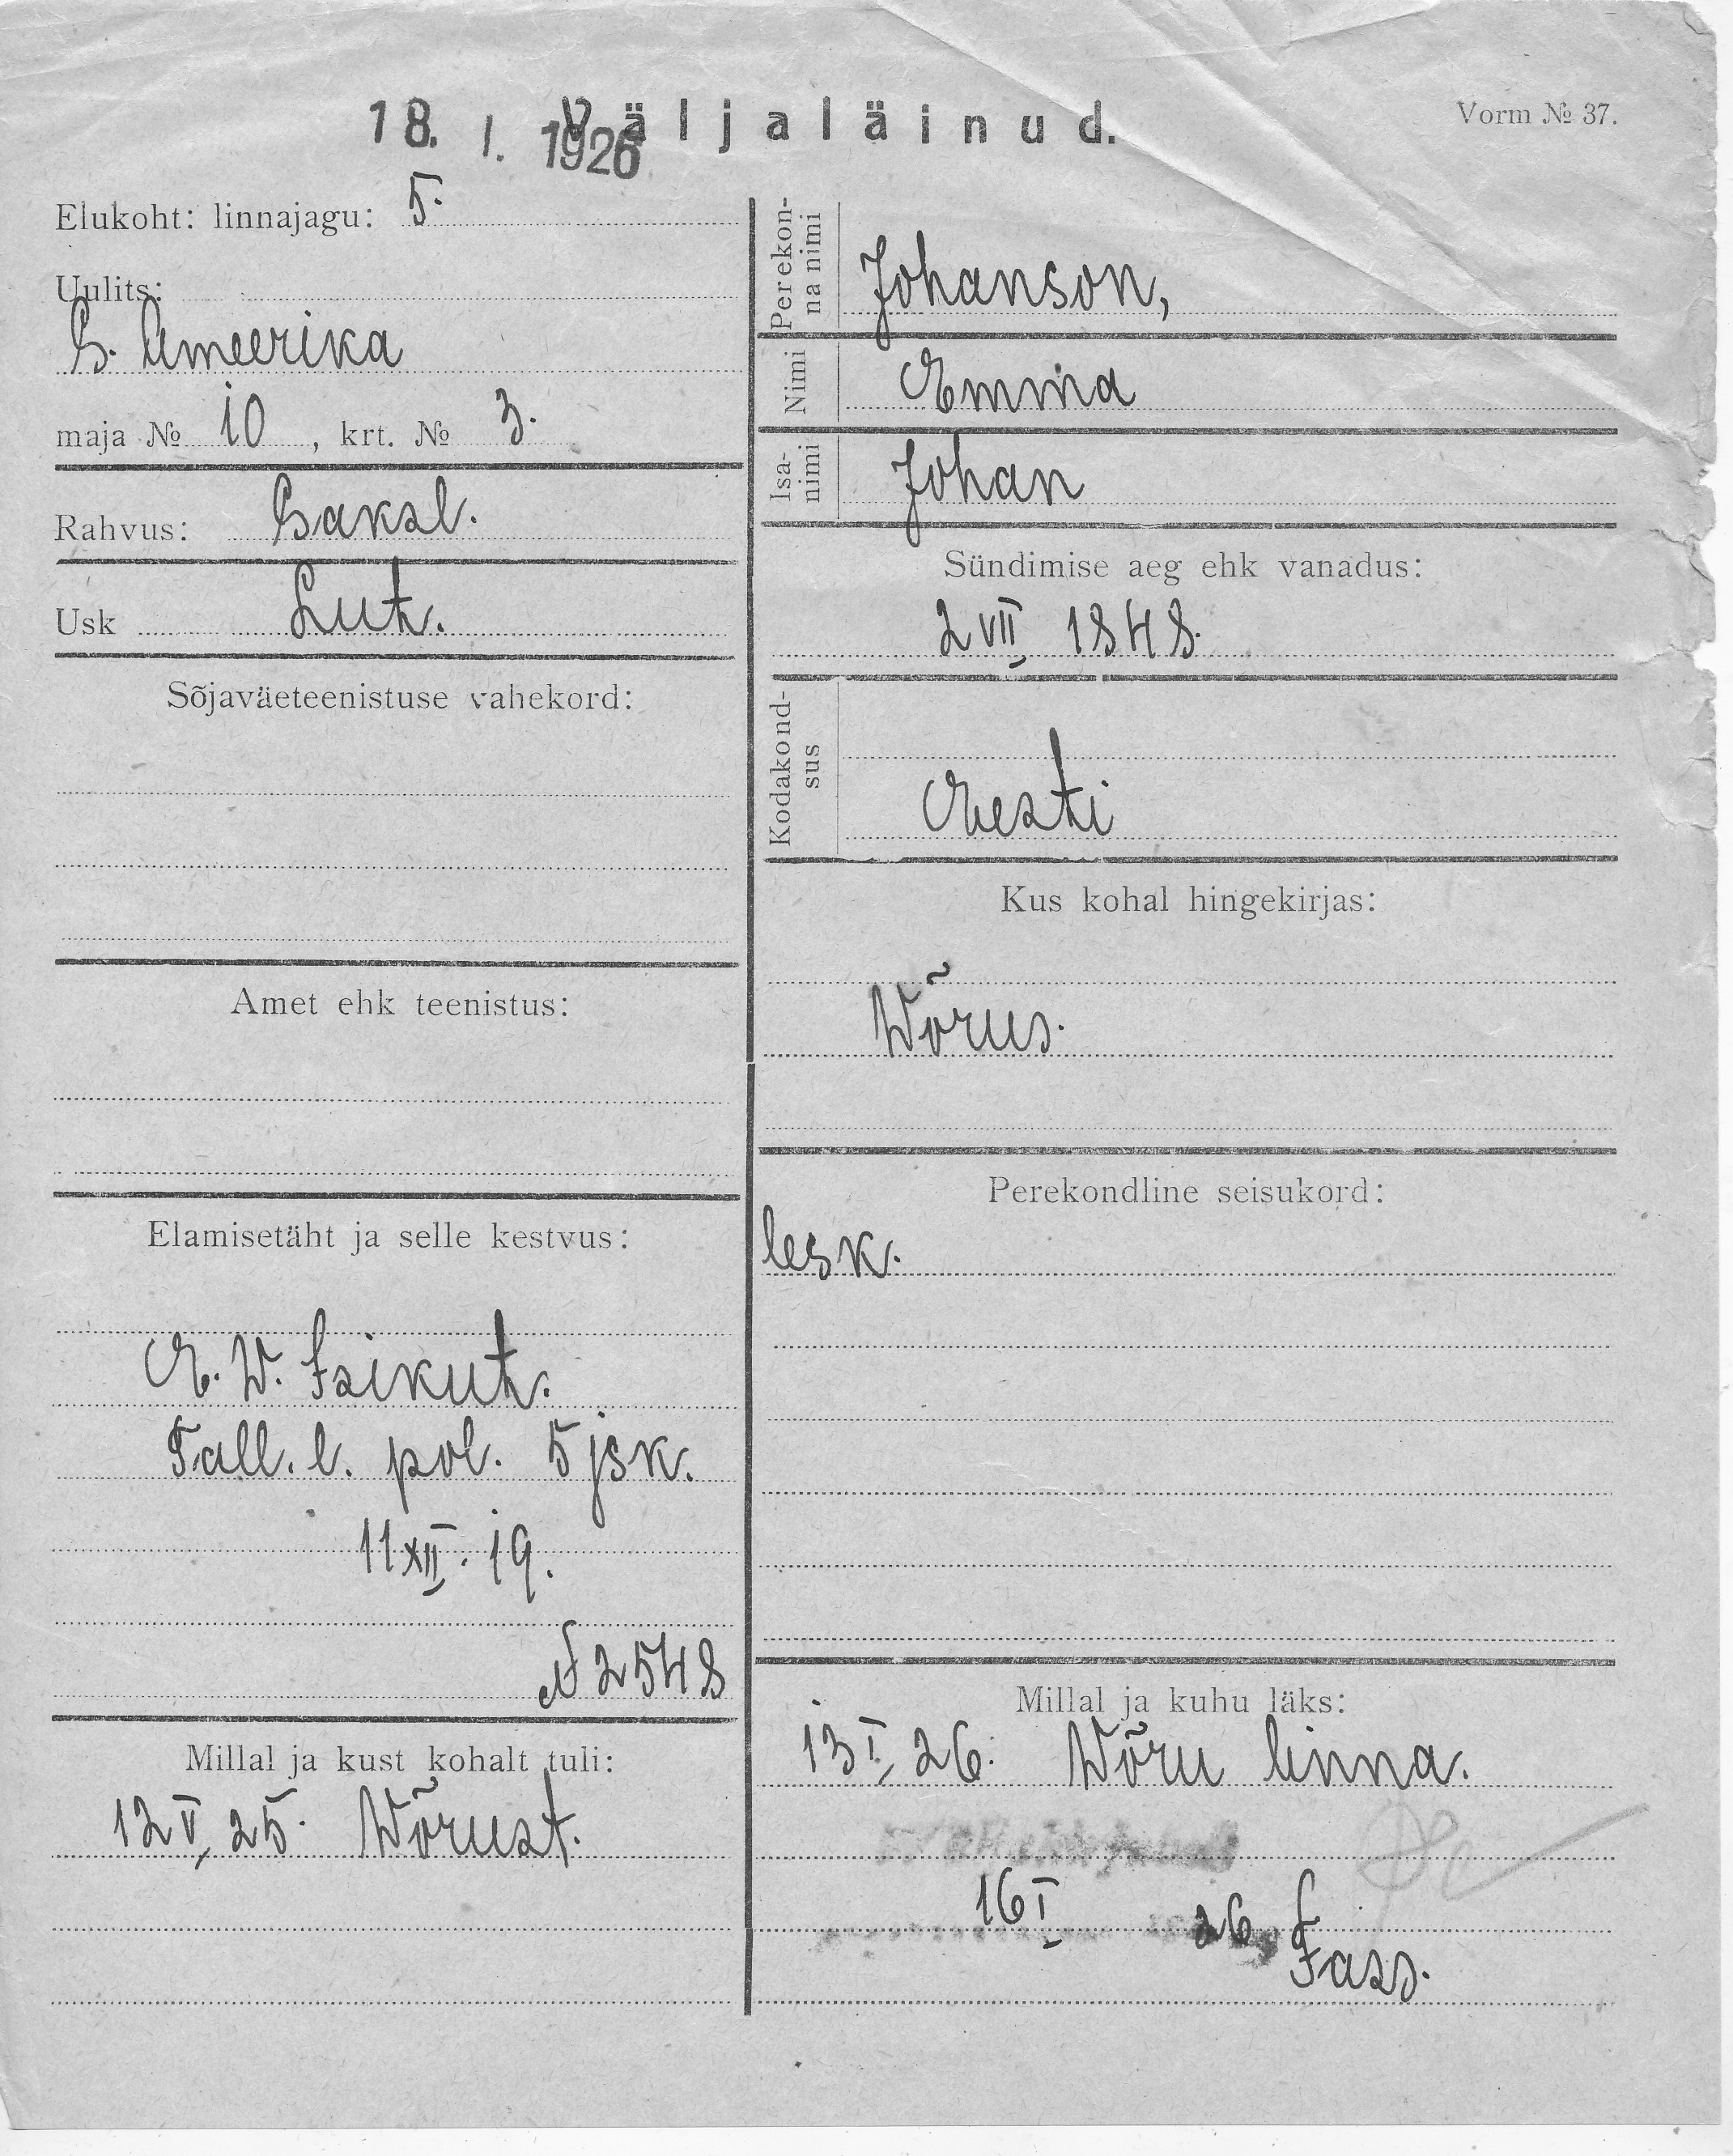 18. I. 1926
Väljaläinud.
Vorm № 37.
Elukoht: linnajagu: 5.
Uulits:
S. Ameerika
maja № 10, krt. № 3.
Rahvus: Saksl.
Usk Lut.
Sõjaväeteenistuse vahekord:
Amet ehk teenistus:
Elamisetäht ja selle kestvus:
E. W. Isikut.
Tall. l. pol. 5 jsk.
11 XII. 19.
№ 2548
Millal ja kust kohalt tuli:
12 V 25. Wõrust.
Perekon-
na nimi
Johanson,
Nimi
Emma
Isa-
nimi
Johan
Sündimise aeg ehk vanadus:
2 VII 1848.
Kodakond-
sus
Eesti
Kus kohal hingekirjas:
Wõrus.
Perekondline seisukord:
lesk.
Millal ja kuhu läks:
13 I 26. Wõru linna.
16 I 26